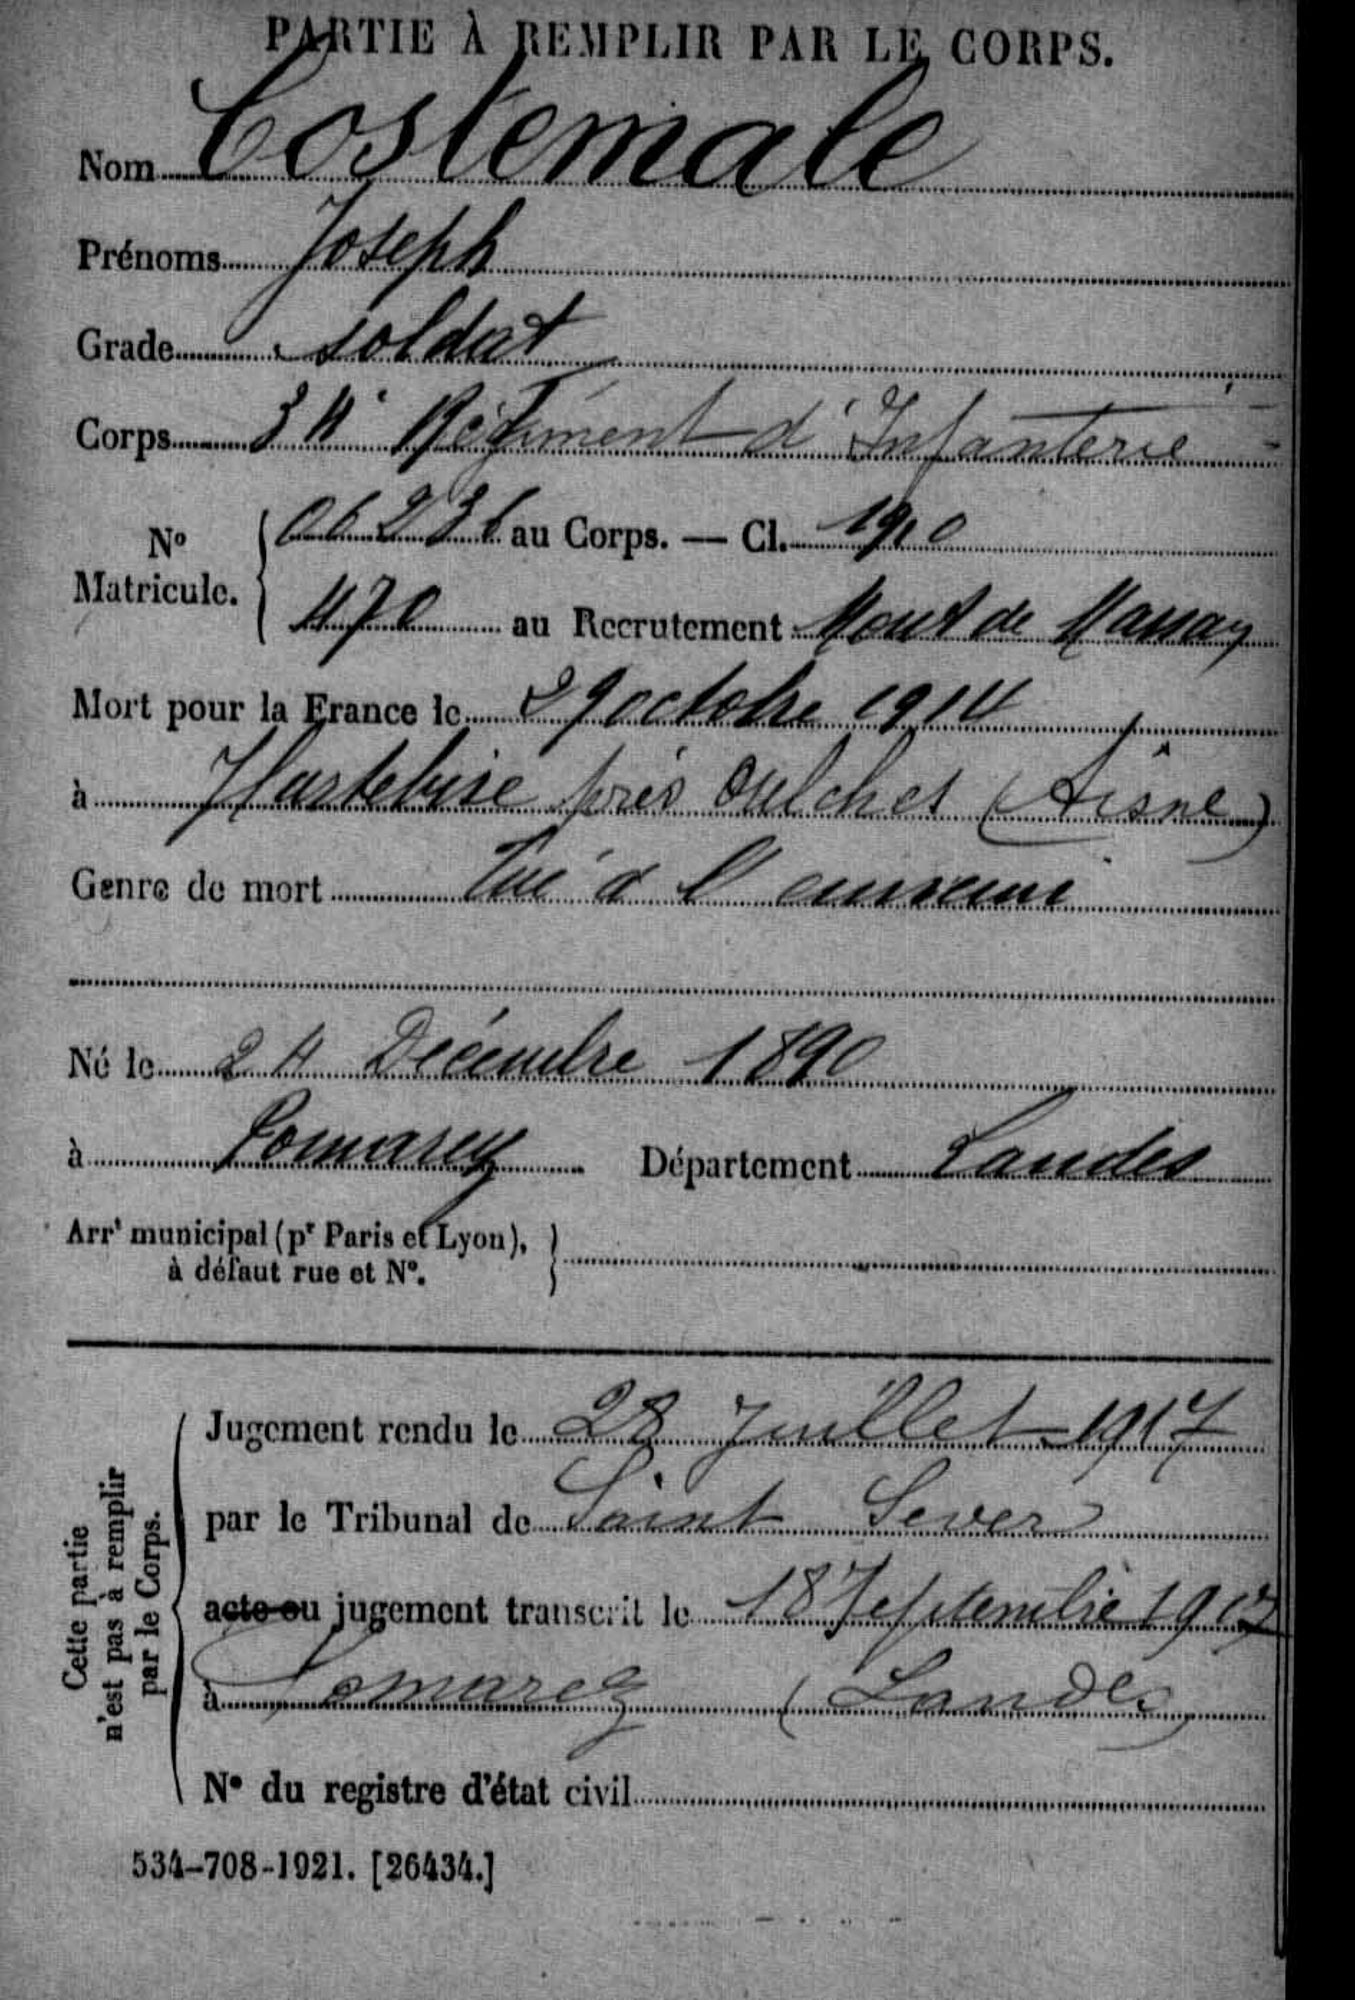 PARTIE À REMPLIR PAR LE CORPS.
Nom Costemale
Prénoms Joseph
Grade soldat
Corps 34e Régiment d'Infanterie
No Matricule. 06236 au Corps. — Cl. 1910
470 au Recrutement Mont de Marsan
Mort pour la France le 29 octobre 1914
à Hurtebise près Oulches (Aisne)
Genre de mort Tué à l'ennemi
Né le 24 Décembre 1890
à Pomarez Département Landes
Arrt municipal (pr Paris et Lyon),
à défaut rue et No.
Cette partie
n'est pas à remplir
par le Corps.
Jugement rendu le 28 Juillet 1917
par le Tribunal de Saint Sever
acte ou jugement transcrit le 18 Septembre 1917
à Pomarez (Landes)
No du registre d'état civil
534-708-1921. [26434.]